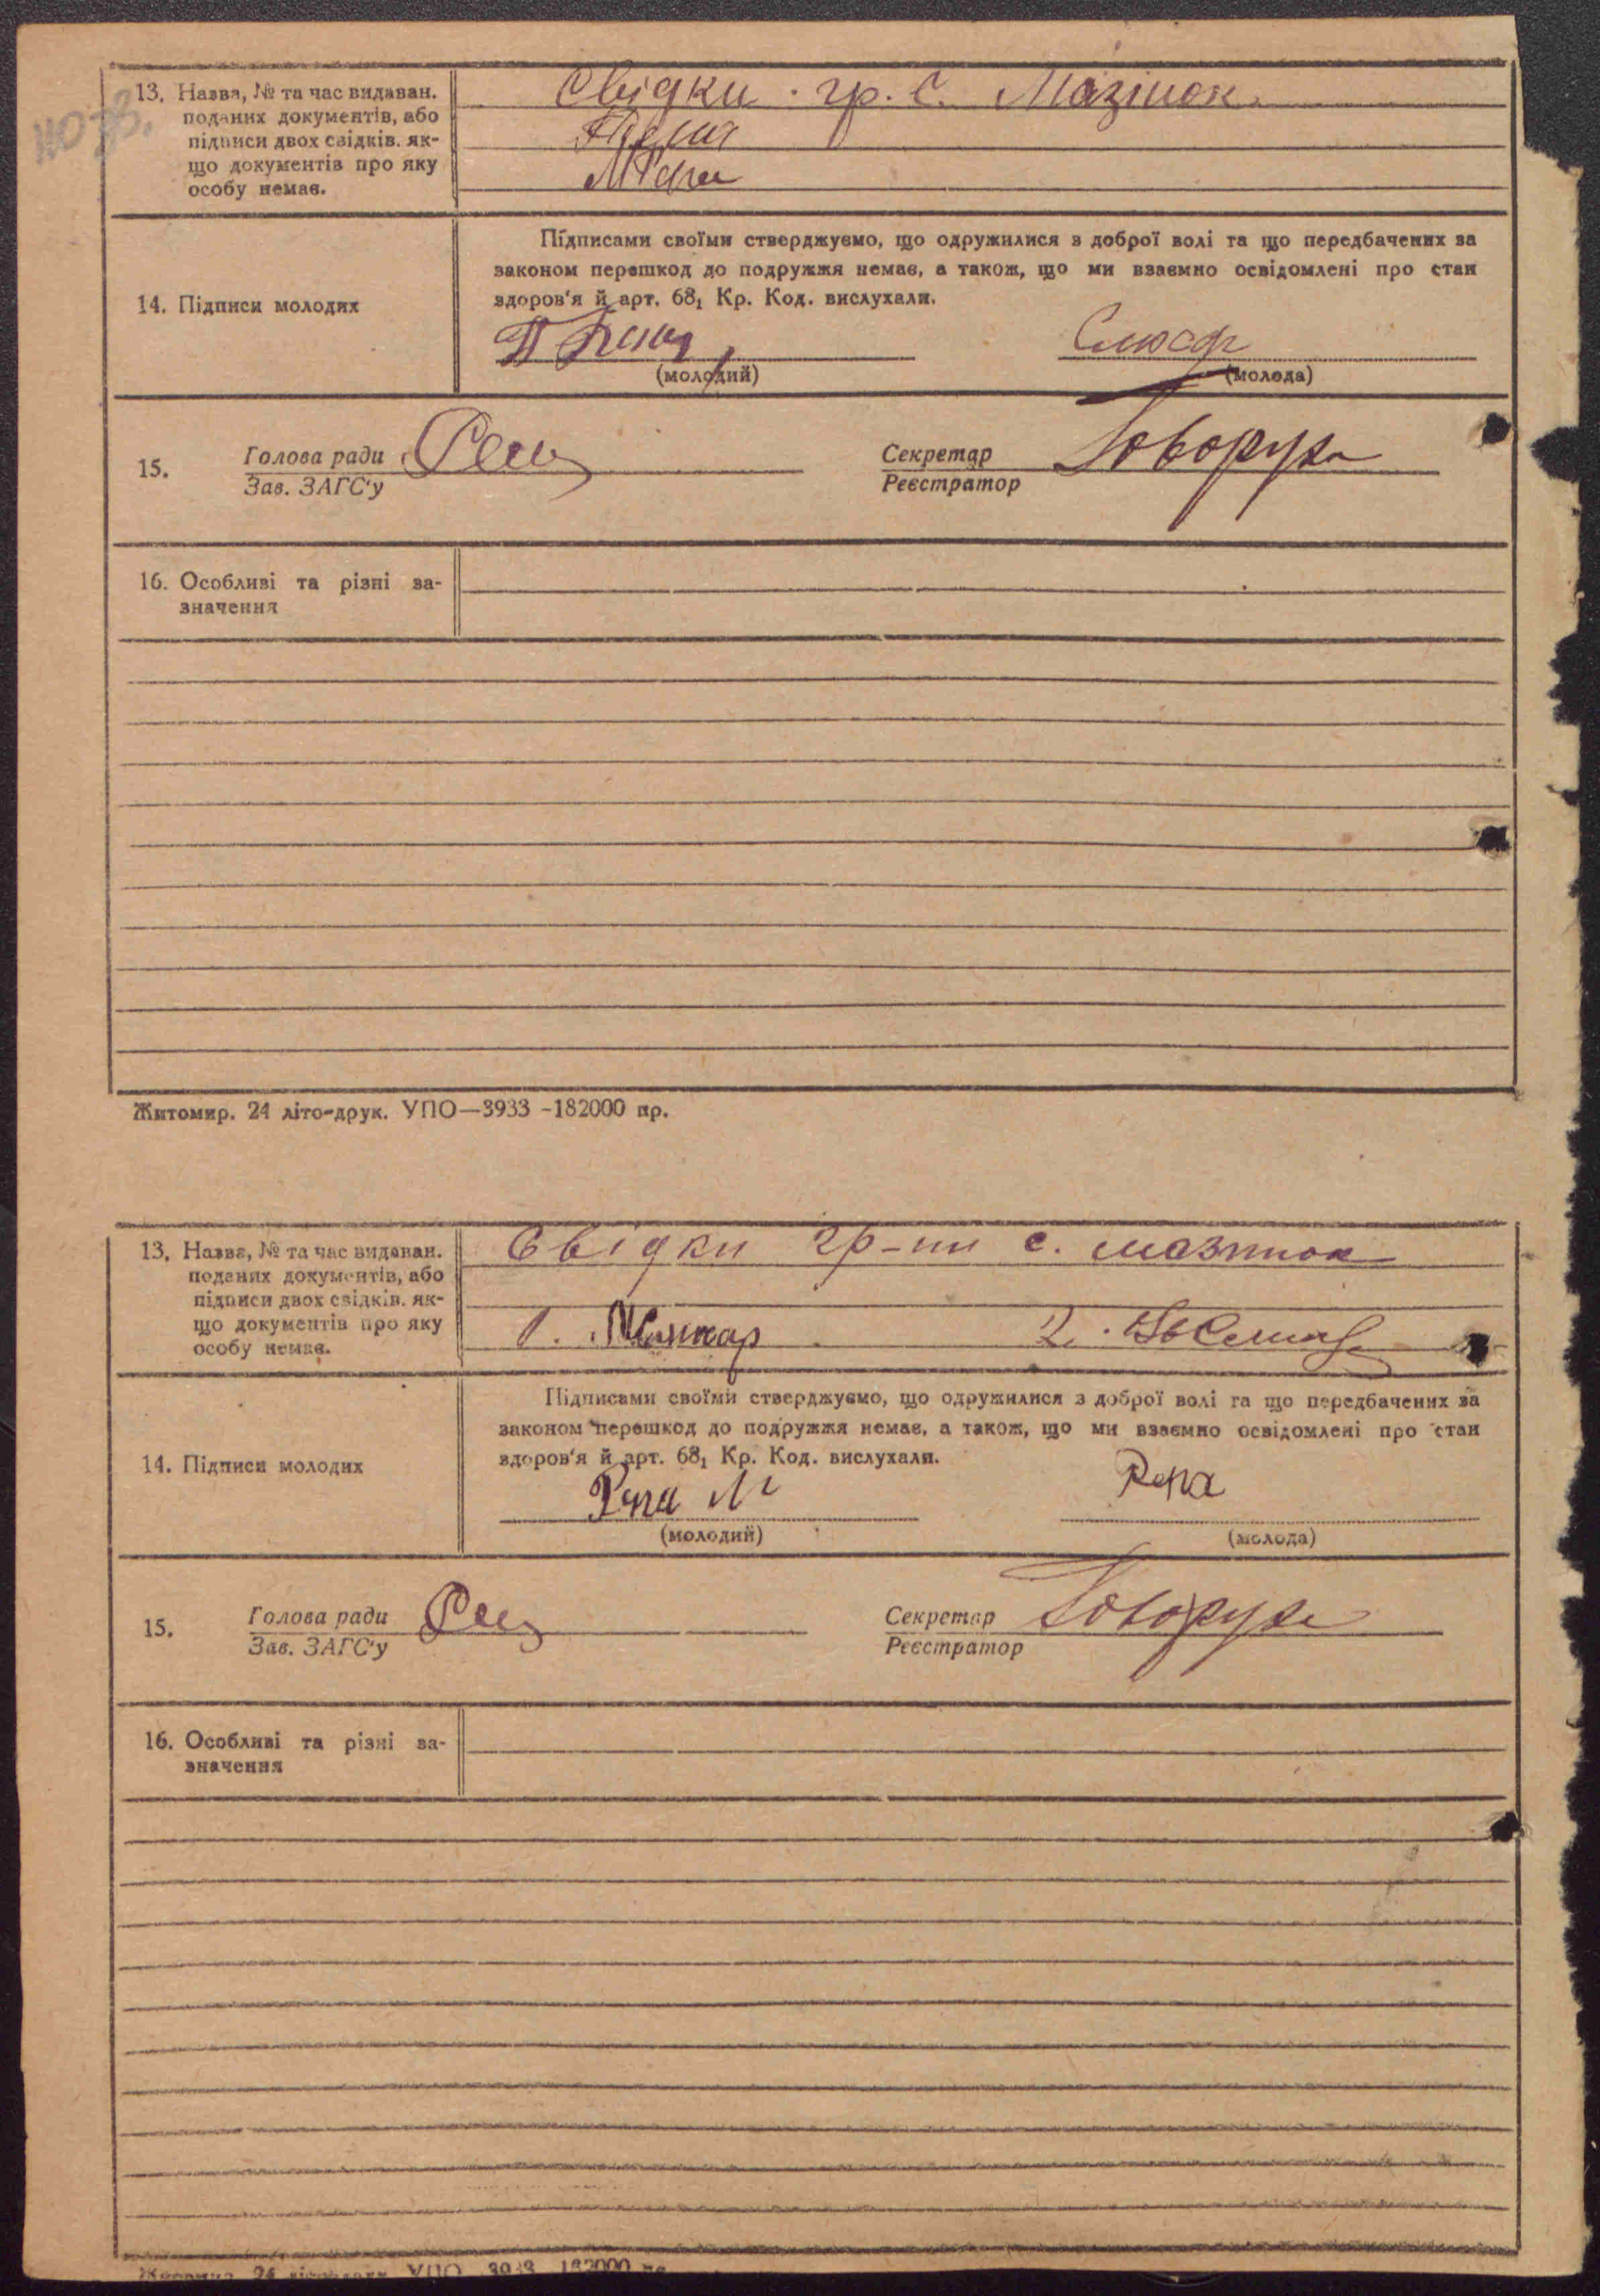 13. Назва, № та час видаван.
поданих документів, або
підписи двох свідків. як-
що документів про яку
особу немає.
Свідки гр. с. Мазінок.
14. Підписи молодих
Підписами своїми стверджуємо, що одружилися з доброї волі та що передбачених за
законом перешкод до подружжя немає, а також, що ми взаємно освідомлені про стан
здоров'я й арт. 68₁ Кр. Код. вислухали.
(молодий) (молода)
15. Голова ради
Зав. ЗАГС'у
Секретар Говоруха
Реєстратор
16. Особливі та різні за-
значення
Житомир. 24 літо-друк. УПО—3933 -182000 пр.
13. Назва, № та час видаван.
поданих документів, або
підписи двох свідків. як-
що документів про яку
особу немає.
Свідки гр-ни с. мазинок
1. 2.
14. Підписи молодих
Підписами своїми стверджуємо, що одружилися з доброї волі та що передбачених за
законом перешкод до подружжя немає, а також, що ми взаємно освідомлені про стан
здоров'я й арт. 68₁ Кр. Код. вислухали.
Репа М Репа
(молодий) (молода)
15. Голова ради
Зав. ЗАГС'у
Секретар Говоруха
Реєстратор
16. Особливі та різні за-
значення
24 УПО 3933 182000